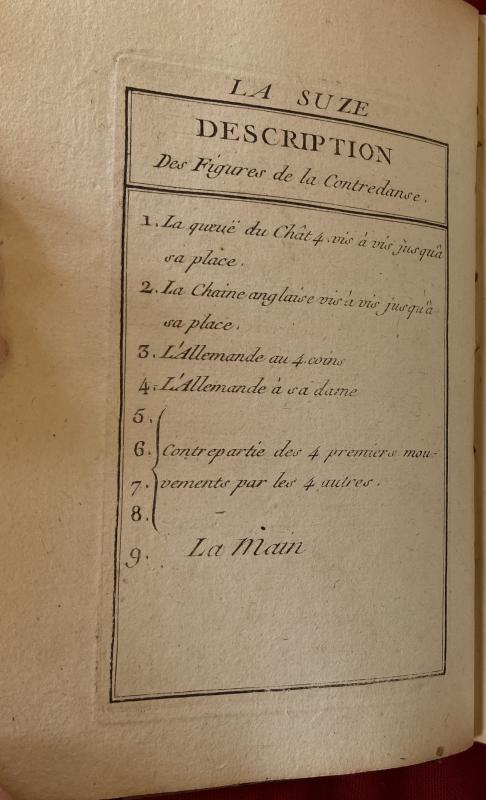 LA SUZE
DESCRIPTION
Des Figures de la Contredanse.
1. La queuë du Chât 4. vis à vis jusqu'à
sa place.
2. La Chaine anglaise vis à vis jusqu'à
sa place.
3. L'Allemande au 4. coins
4. L'Allemande à sa dame
5.
6. Contrepartie des 4 premiers mou-
7. vements par les 4 autres.
8.
9. La Main